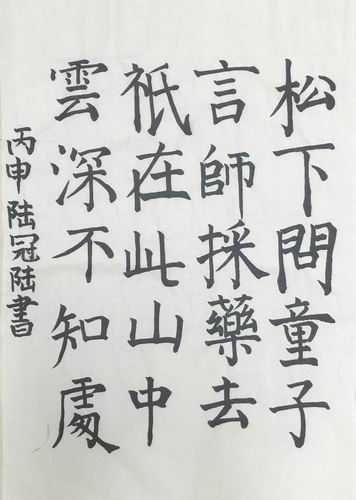 松下問童子
言師採藥去
祇在此山中
雲深不知處
丙申陸冠陸書